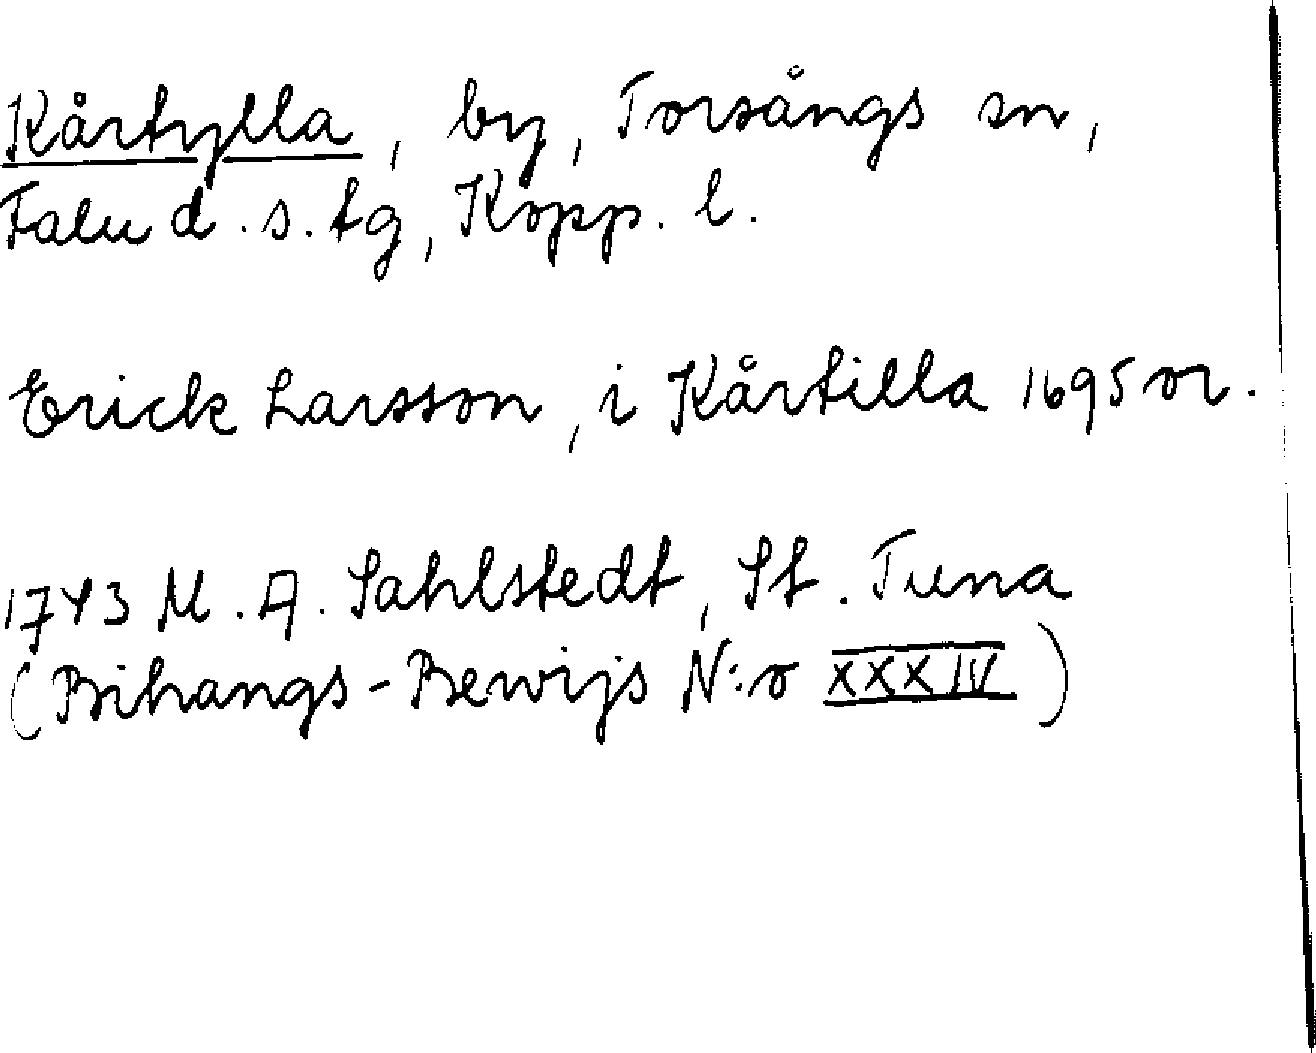 Kårtylla, by, Torsångs sn,
Falu d.s.tg, Kopp. l.
Erick Larsson, i Kårtilla 1695 or.
1743 M. A. Sahlstedt, St. Tuna
(Bihangs-Bewijs N:o XXXIV)